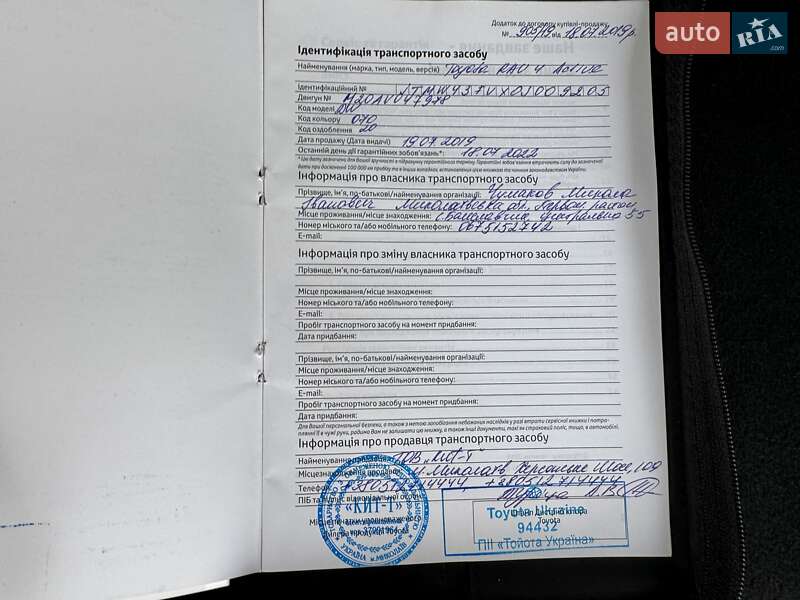 Додаток до договору купівлі-продажу
№ 903/19 від 18.07.2019р.
auto RIA .com
Ідентифікація транспортного засобу
Найменування (марка, тип, модель, версія) Toyota RAV 4 Active
Ідентифікаційний №
Двигун № M20AV047978
Код моделі
Код кольору 070
Код оздоблення 20
Дата продажу (Дата видачі) 19.07.2019
Останній день дії гарантійних зобов'язань*: 18.07.2022
* Цю дату зазначено для вашої зручності в підрахунку гарантійного терміну. Гарантійні зобов'язання втрачають силу до зазначеної
дати при досягненні 100 000 км пробігу та в інших випадках, встановлених цією книжкою та чинним законодавством України.
Інформація про власника транспортного засобу
Прізвище, ім'я, по-батькові/найменування організації: Чумаков Микола
Іванович Миколаївська
Місце проживання/місце знаходження: Центральна 55
Номер міського та/або мобільного телефону: 0675152742
E-mail:
Інформація про зміну власника транспортного засобу
Прізвище, ім'я, по-батькові/найменування організації:
Місце проживання/місце знаходження:
Номер міського та/або мобільного телефону:
E-mail:
Пробіг транспортного засобу на момент придбання:
Дата придбання:
Прізвище, ім'я, по-батькові/найменування організації:
Місце проживання/місце знаходження:
Номер міського та/або мобільного телефону:
E-mail:
Пробіг транспортного засобу на момент придбання:
Дата придбання:
Для Вашої персональної безпеки, а також з метою запобігання небажаних наслідків у разі втрати сервісної книжки і потра-
пляння її в чужі руки, радимо Вам не залишати цю книжку, а також інші документи, такі як страховий поліс, тощо, в автомобілі.
Інформація про продавця транспортного засобу
Найменування ТОВ "КИТ-Т"
Місцезнаходження продавця м. Миколаїв Херсонське шосе,
Телефон +380512714444
ПІБ та підпис відповідальної особи
«КИТ-Т»
УКРАЇНА м.МИКОЛАЇВ
Місце печатки уповноваженого
Toyota Ukraine
Toyota
94432
ПІІ «Тойота Україна»